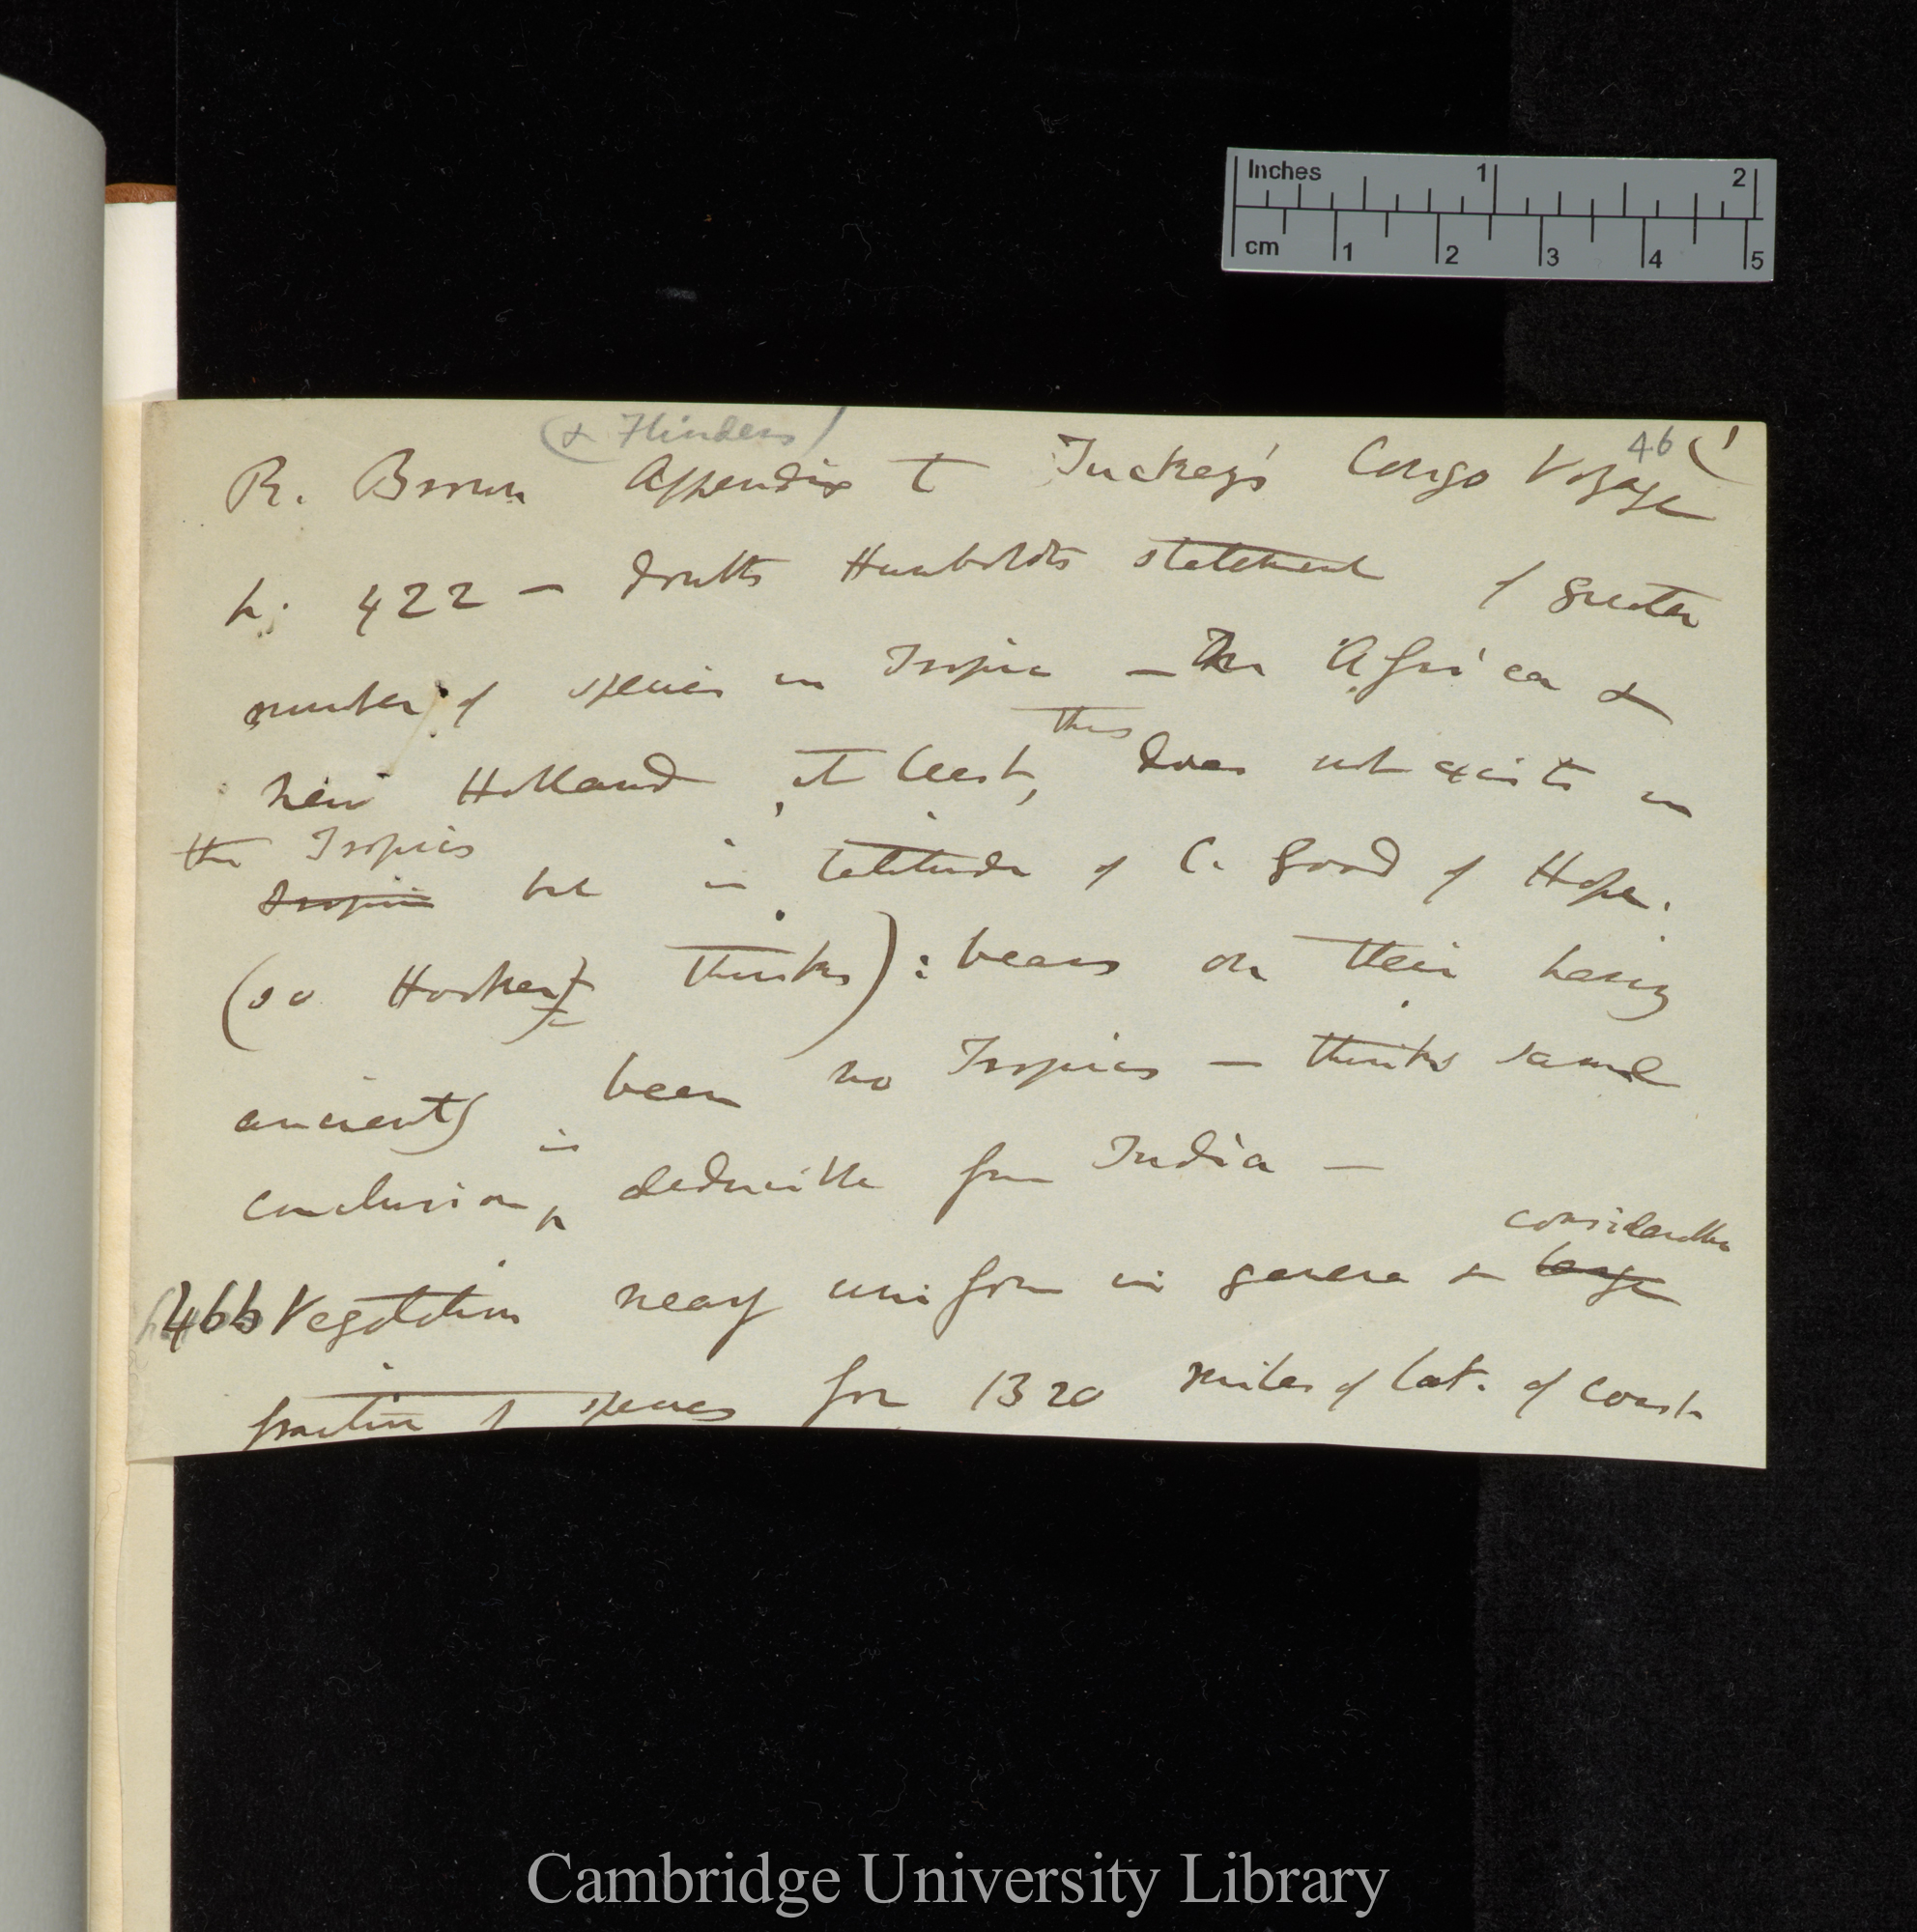 Inches 1 2
cm 1 2 3 4 5
46 (1
(& Flinders)
R. Brown Appendix to Tuckey's Congo Voyage
p. 422 — doubts Humboldts statement of greater
number of species in Tropics — In Africa &
New Holland, at least, this does not exist in
the Tropics
Tropics but in latitude of C. Good of Hope.
(so Hooker thinks): bears on their having
anciently been no Tropics — thinks same
conclusion is deducible from India —
considerable
466 Vegetation nearly uniform in genera & large
fraction of species for 1320 miles of lat. of coast
Cambridge University Library